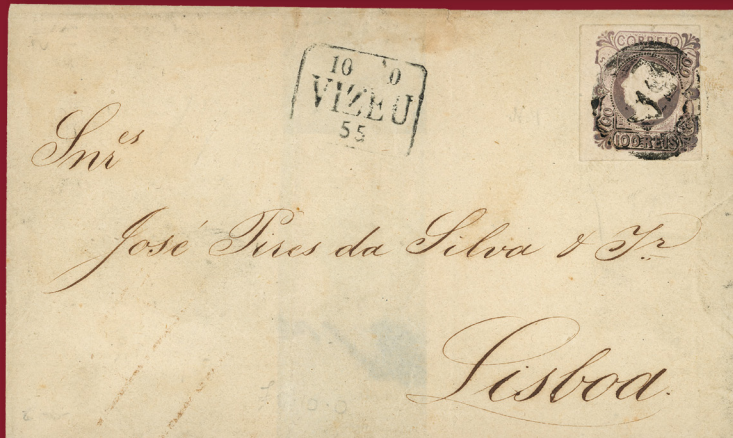 10 0
VIZEU
55
CORREIO
100 REIS
Snr.es
José Pires da Silva & Jr.
Lisboa.